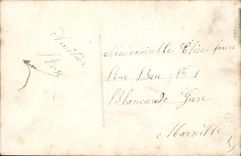 Amitiés
Mademoiselle Elise Favre
Rue Bau N° 1
Blancarde Gare
Marseille